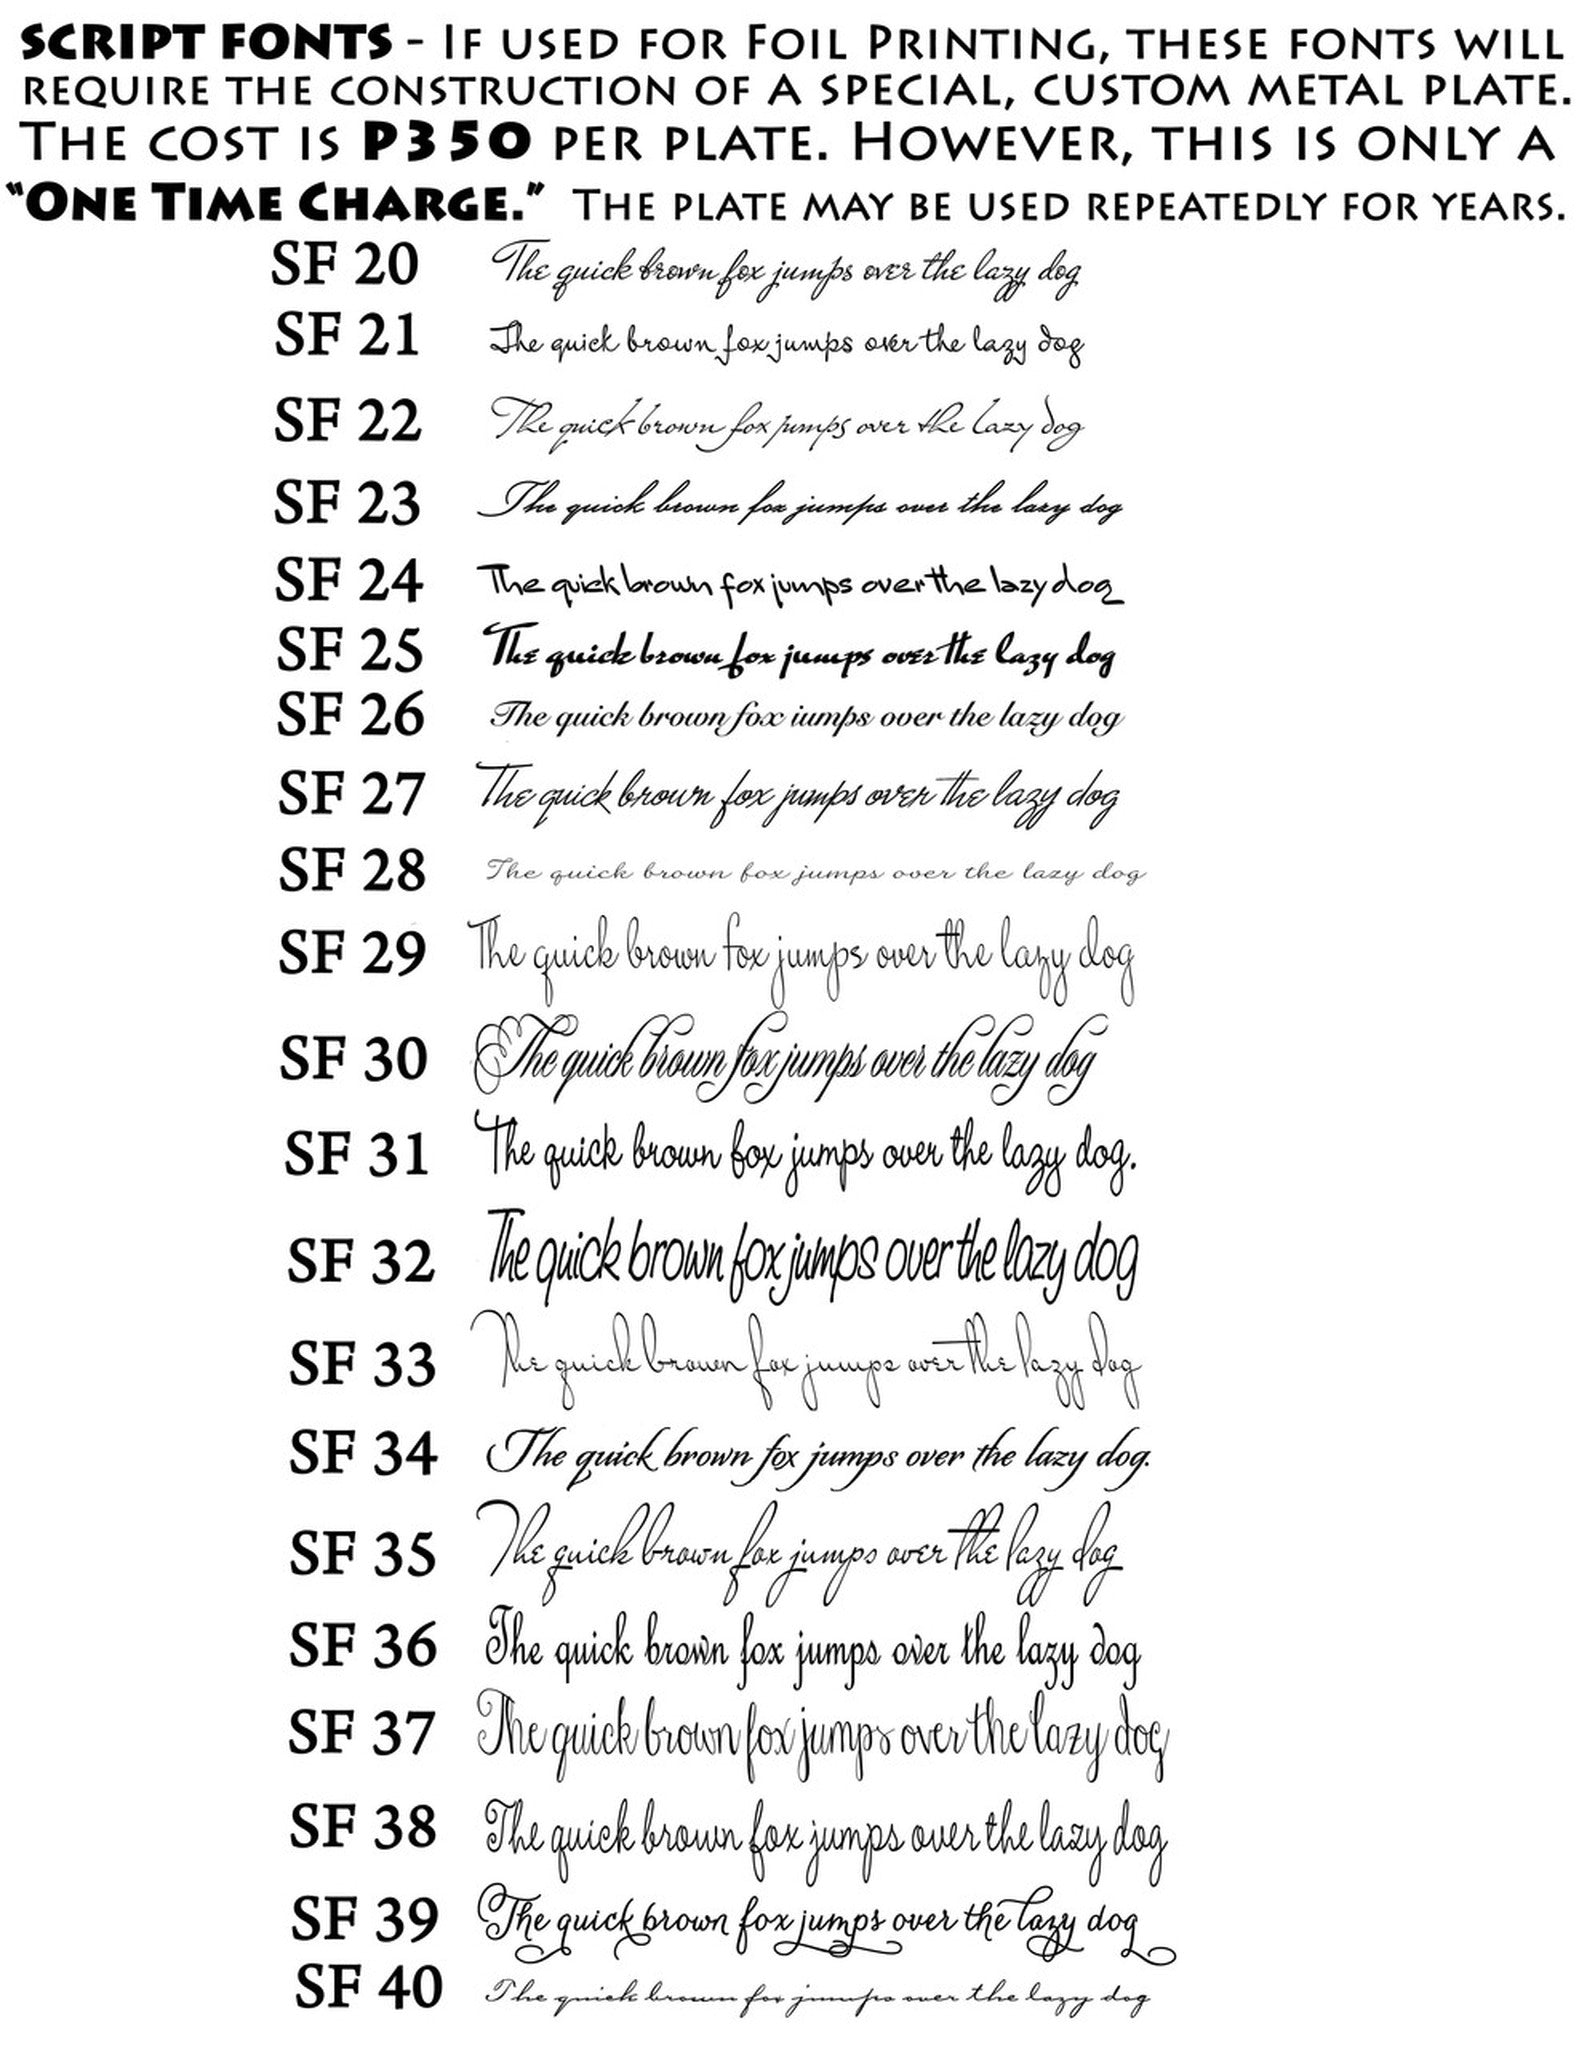 SCRIPT FONTS - IF USED FOR FOIL PRINTING, THESE FONTS WILL
REQUIRE THE CONSTRUCTION OF A SPECIAL, CUSTOM METAL PLATE.
THE COST IS P350 PER PLATE. HOWEVER, THIS IS ONLY A
"ONE TIME CHARGE." THE PLATE MAY BE USED REPEATEDLY FOR YEARS.
SF 20 The quick brown fox jumps over the lazy dog
SF 21 The quick brown fox jumps over the lazy dog
SF 22 The quick brown fox jumps over the lazy dog
SF 23 The quick brown fox jumps over the lazy dog
SF 24 The quick brown fox jumps over the lazy dog
SF 25 The quick brown fox jumps over the lazy dog
SF 26 The quick brown fox iumps over the lazy dog
SF 27 The quick brown fox jumps over the lazy dog
SF 28 The quick brown fox jumps over the lazy dog
SF 29 The quick brown fox jumps over the lazy dog
SF 30 The quick brown fox jumps over the lazy dog
SF 31 The quick brown fox jumps over the lazy dog.
SF 32 The quick brown fox jumps over the lazy dog
SF 33 The quick brown fox jumps over the lazy dog
SF 34 The quick brown fox jumps over the lazy dog.
SF 35 The quick brown fox jumps over the lazy dog
SF 36 The quick brown fox jumps over the lazy dog
SF 37 The quick brown fox jumps over the lazy dog
SF 38 The quick brown fox jumps over the lazy dog
SF 39 The quick brown fox jumps over the lazy dog
SF 40 The quick brown fox jumps over the lazy dog